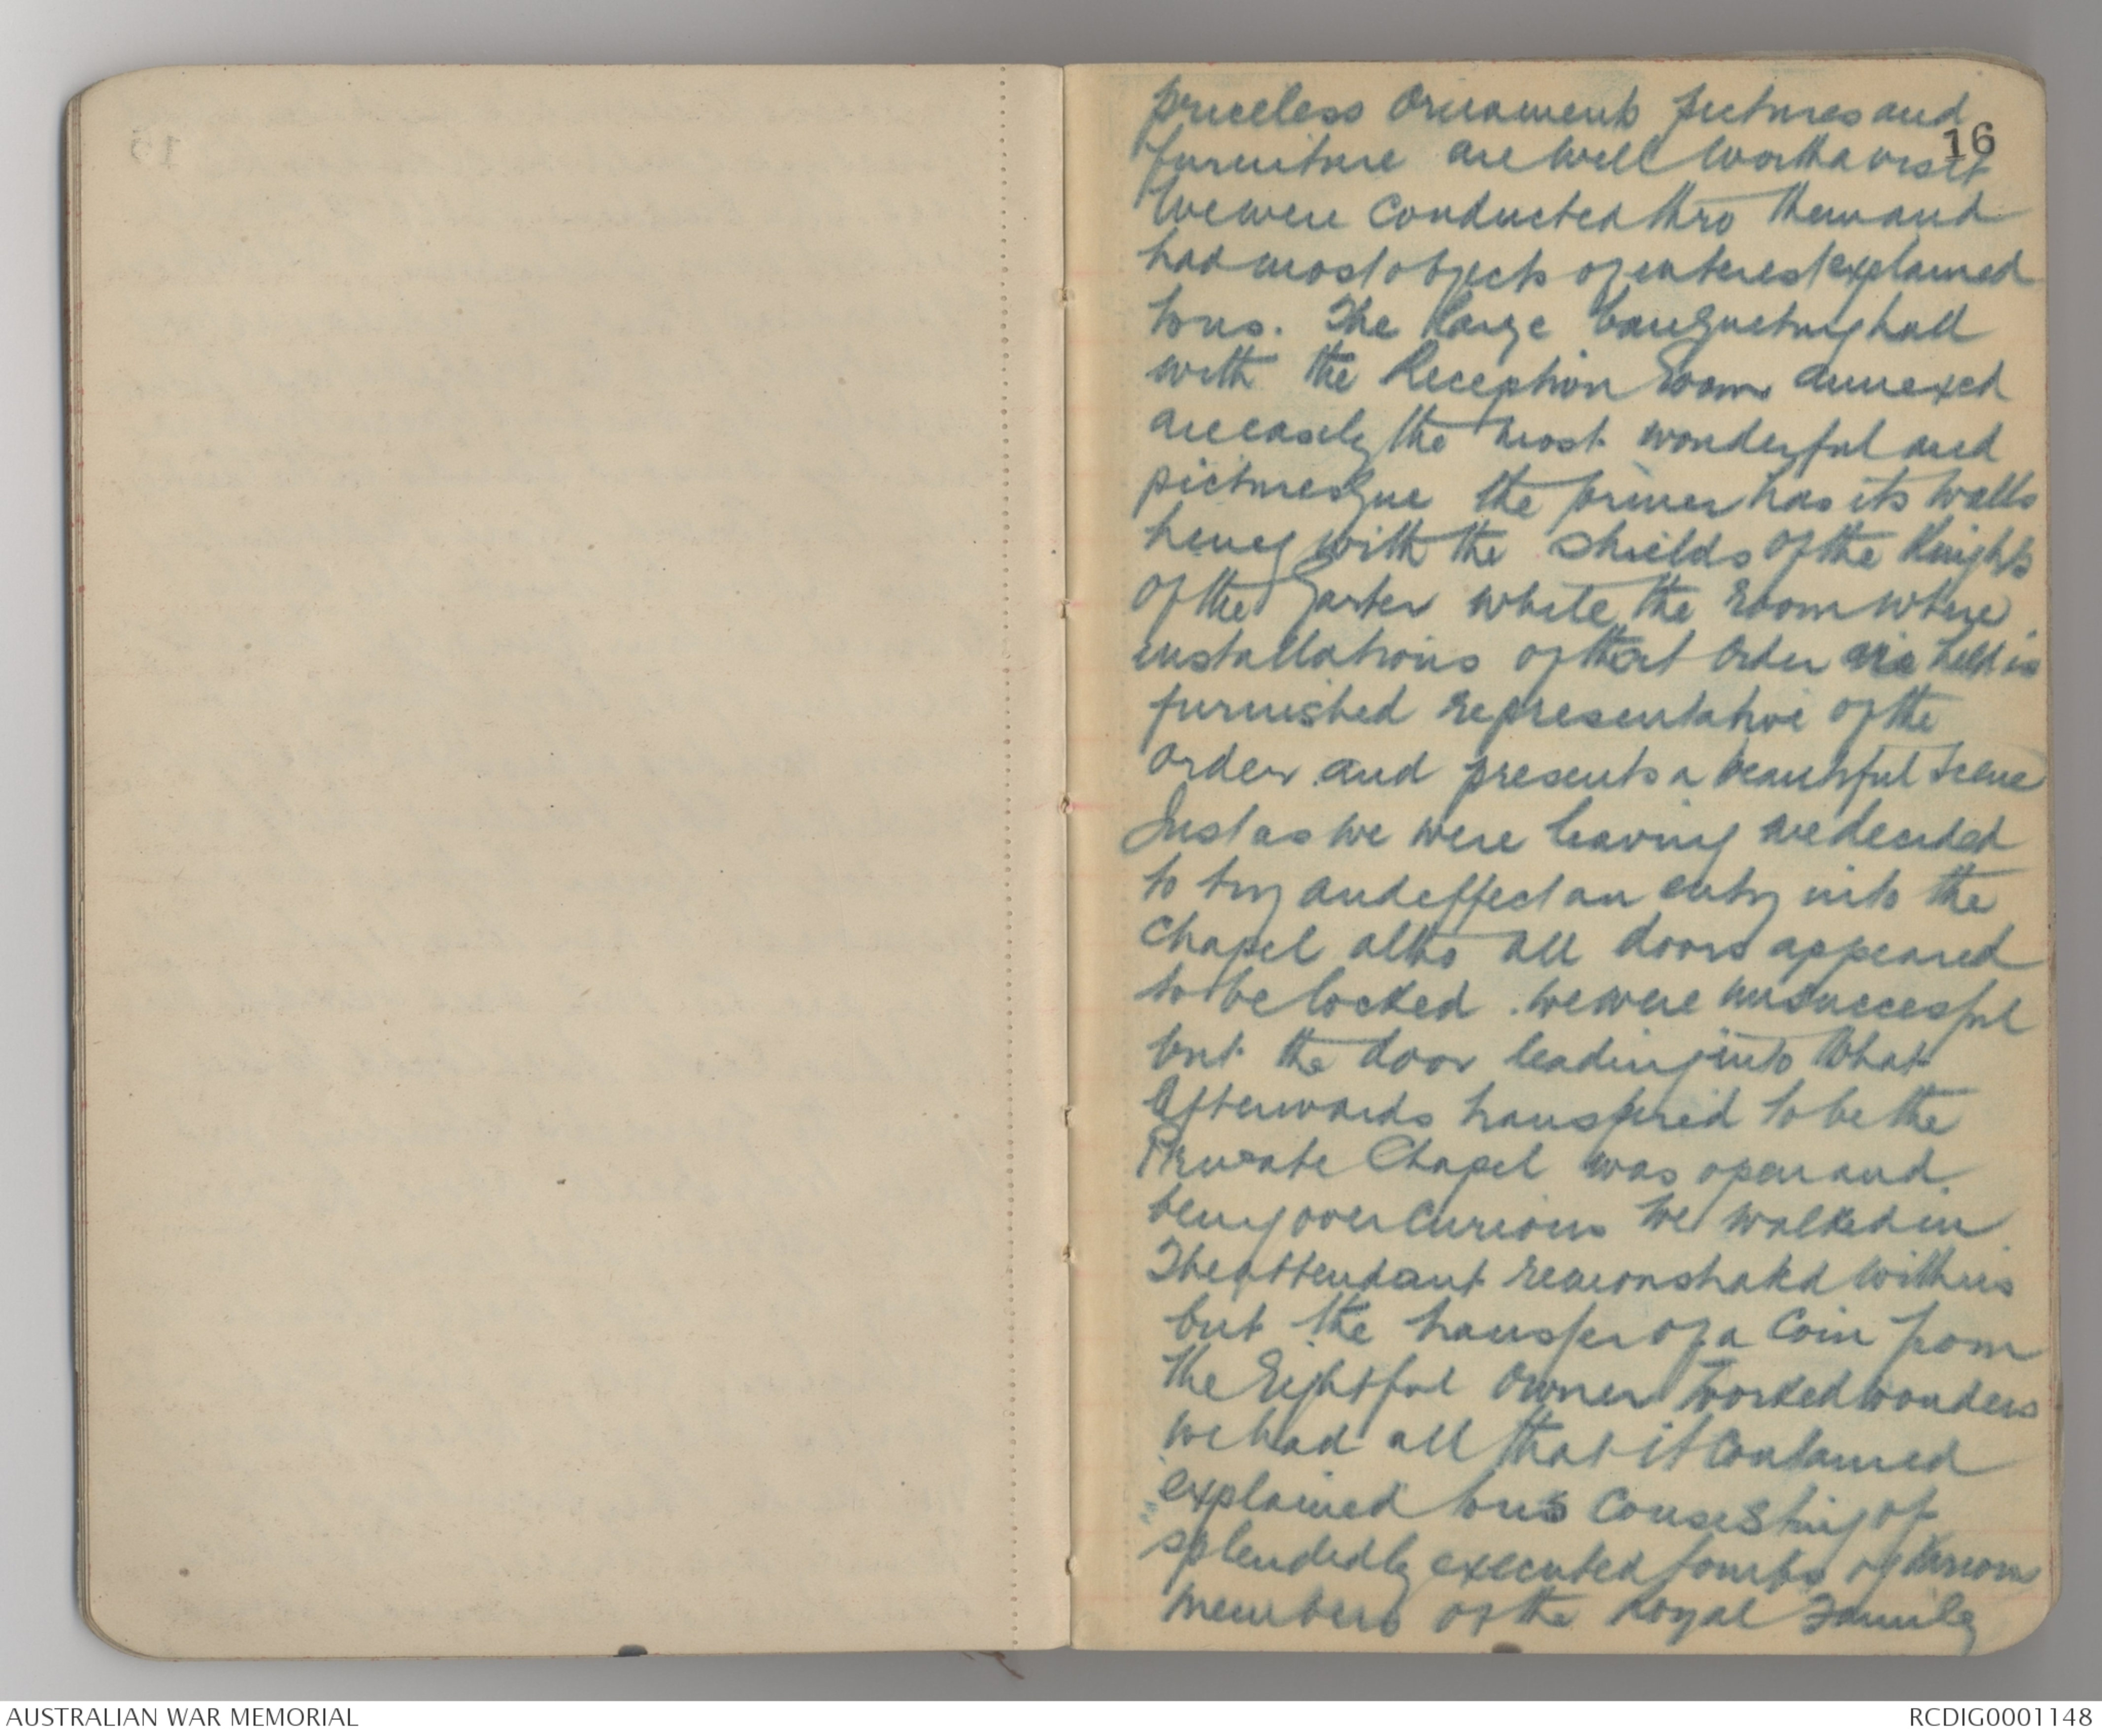 16
priceless Ornaments pictures and
furniture are well worth a visit
We were conducted thro them and
had most objects of interest explained
to us. The large banqueting hall
with the Reception Room annexed
are easily the most wonderful and
picturesque the former has its walls
hung with the shields of the Knights
of the Garter while the Room where
installations of that Order are held is
furnished representative of the
order and presents a beautiful scene
Just as we were leaving we decided
to try and effect an entry into the
Chapel altho all doors appeared
to be locked. we were unsuccesful
but the door leading into what
Afterwards transpired to be the
Private Chapel was open and
being over curious we walked in
The attendant remonstrated with us
but the transfer of a Coin from
the rightful Owner worked wonders
we had all that it contained
explained to us consisting of
splendidly executed tombs of various
members of the Royal Family
AUSTRALIAN WAR MEMORIAL
RCDIG0001148